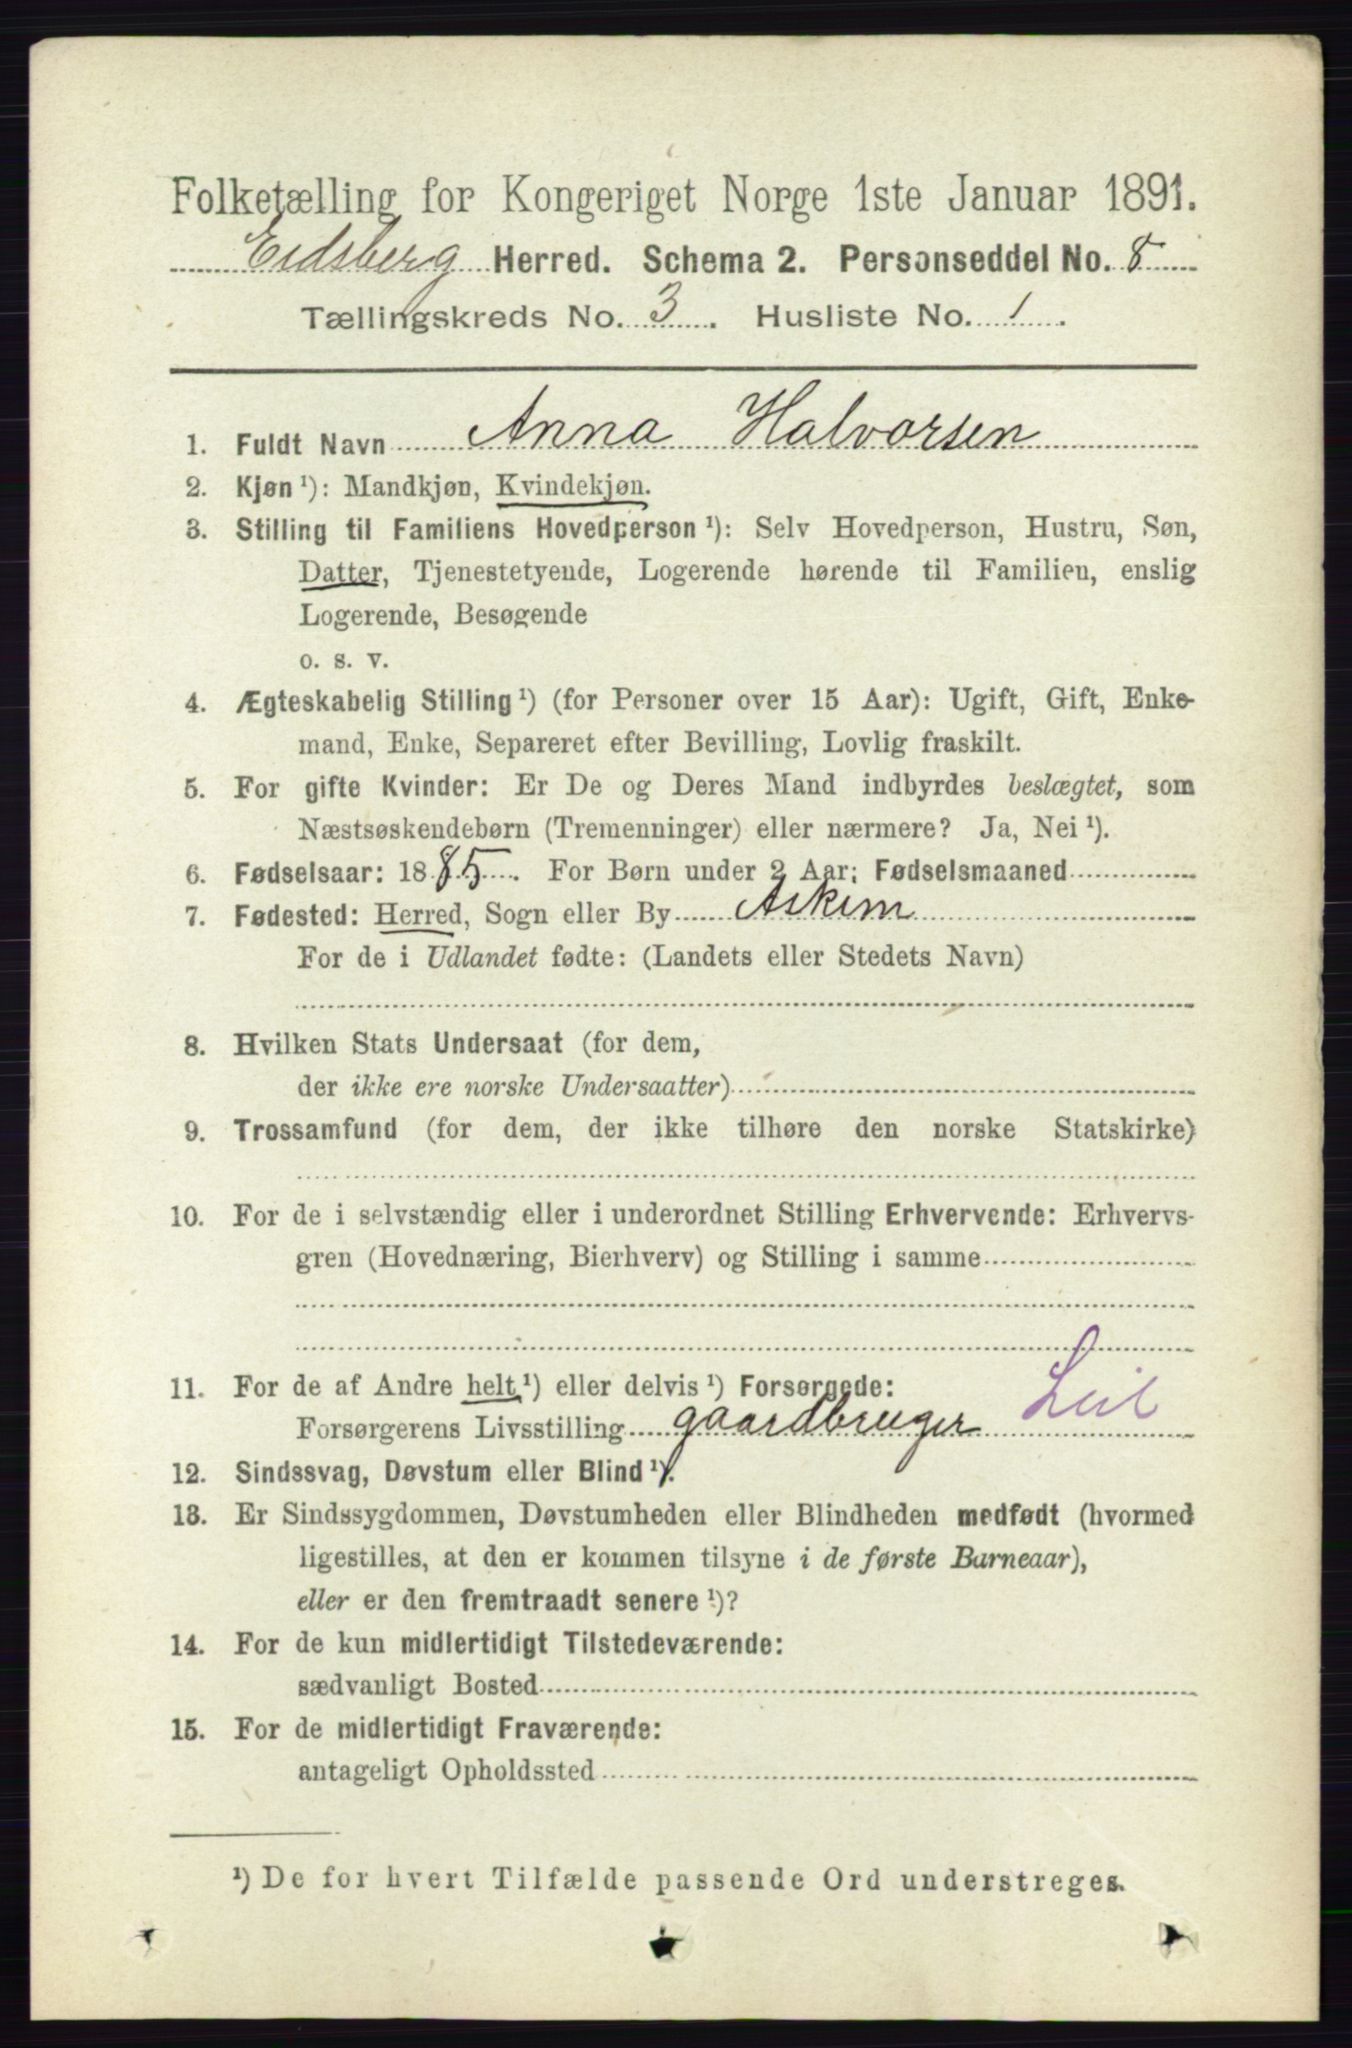 Folketælling for Kongeriget Norge 1ste Januar 1891.
Eidsberg Herred. Schema 2. Personseddel No. 8
Tællingskreds No. 3. Husliste No. 1.
1. Fuldt Navn Anna Halvorsen
2. Kjøn ¹): Mandkjøn, Kvindekjøn.
3. Stilling til Familiens Hovedperson ¹): Selv Hovedperson, Hustru, Søn,
Datter, Tjenestetyende, Logerende hørende til Familien, enslig
Logerende, Besøgende
o. s. v.
4. Ægteskabelig Stilling ¹) (for Personer over 15 Aar): Ugift, Gift, Enke-
mand, Enke, Separeret efter Bevilling, Lovlig fraskilt.
5. For gifte Kvinder: Er De og Deres Mand indbyrdes beslægtet, som
Næstsøskendebørn (Tremenninger) eller nærmere? Ja, Nei ¹).
6. Fødselsaar: 1885. For Børn under 2 Aar: Fødselsmaaned
7. Fødested: Herred, Sogn eller By Askim
For de i Udlandet fødte: (Landets eller Stedets Navn)
8. Hvilken Stats Undersaat (for dem,
der ikke ere norske Undersaatter)
9. Trossamfund (for dem, der ikke tilhøre den norske Statskirke)
10. For de i selvstændig eller i underordnet Stilling Erhvervende: Erhvervs-
gren (Hovednæring, Bierhverv) og Stilling i samme
11. For de af Andre helt ¹) eller delvis ¹) Forsørgede:
Forsørgerens Livsstilling gaardbruger
12. Sindssvag, Døvstum eller Blind ¹).
13. Er Sindssygdommen, Døvstumheden eller Blindheden medfødt (hvormed
ligestilles, at den er kommen tilsyne i de første Barneaar),
eller er den fremtraadt senere ¹)?
14. For de kun midlertidigt Tilstedeværende:
sædvanligt Bosted
15. For de midlertidigt Fraværende:
antageligt Opholdssted
¹) De for hvert Tilfælde passende Ord understreges.